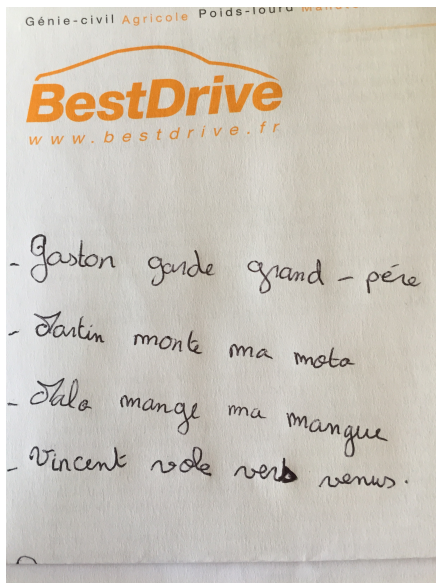 Génie-civil Agricole Poids-lourd
BestDrive
www.bestdrive.fr
- Gaston garde grand-pére
- Martin monte ma moto
- Malo mange ma mangue
- Vincent vole vers venus.